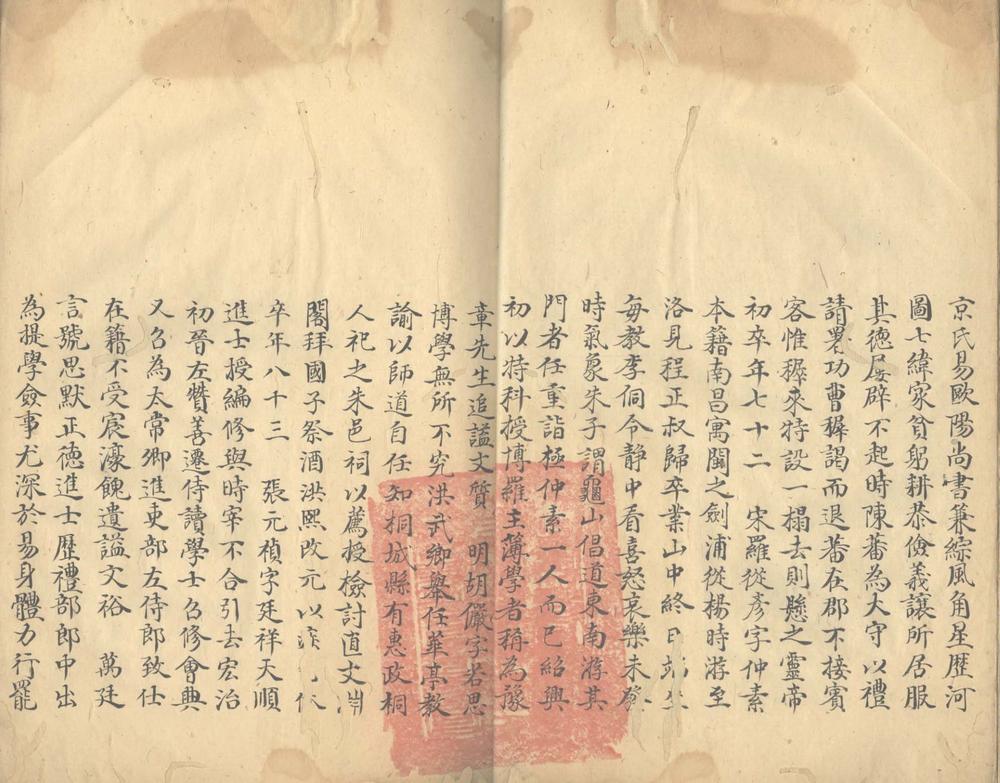 京氏易歐陽尚書兼綜風角星歷河
圖七緯家貧躬耕恭儉義讓所居服
其德屢辟不起時陳蕃為大守以禮
請署功曹穉謁而退蕃在郡不接賓
客惟穉來特設一榻去則懸之靈帝
初卒年七十二　宋羅從彥字仲素
本籍南昌寓閩之劍浦從楊時游至
洛見程正叔歸卒業山中終日
每教李侗令静中看喜怒哀樂未發
時氣象朱子謂龜山倡道東南游其
門者任重詣極仲素一人而已紹興
初以特科授博羅主簿學者稱為豫
章先生追謚文質　明胡儼字若思
博學無所不究洪武鄉舉任華亭教
諭以師道自任知桐城縣有惠政桐
人祀之朱邑祠以薦授檢討直文淵
閣拜國子祭酒洪熙改元以
卒年八十三　張元禎字廷祥天順
進士授編修與時宰不合引去宏治
初晉左贊善遷侍讀學士召修會典
又召為太常卿進吏部左侍郎致仕
在籍不受宸濠餽遺謚文裕　萬廷
言號思默正德進士歷禮部郎中出
為提學僉事尤深於易身體力行罷